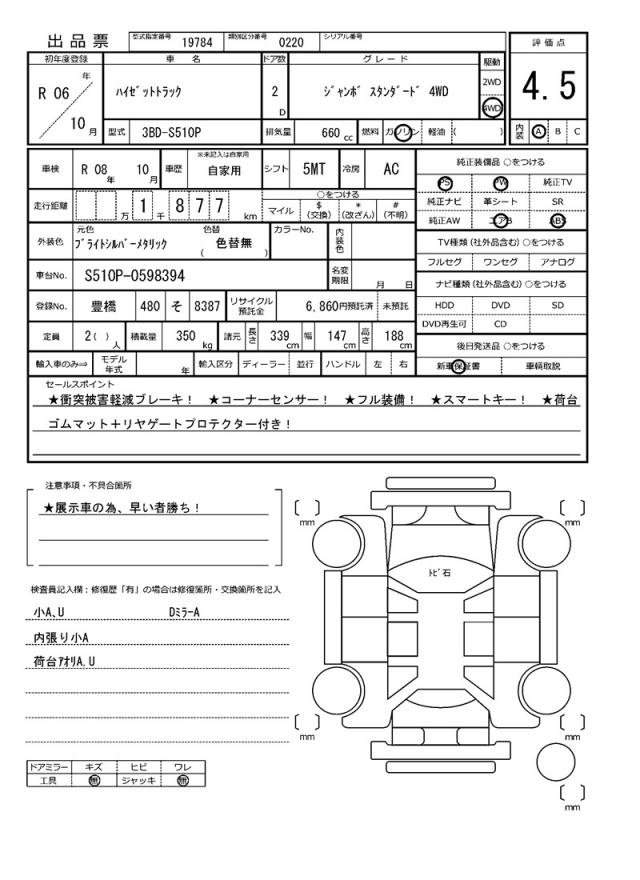 出品票 型式指定番号 19784 類別区分番号 0220 シリアル番号
初年度登録 車名 ドア数 グレード 駆動 評価点
R 06 年 10 月 ハイゼットトラック 2 D ジャンボ スタンダード 4WD 2WD 4WD 4.5
型式 3BD-S510P 排気量 660 cc 燃料 ガソリン 軽油 ( ) 内装 A B C
車検 R 08 年 10 月 車歴 ※未記入は自家用 自家用 シフト 5MT 冷房 AC 純正装備品 ○をつける
PS PW 純正TV
走行距離 万 1 千 8 7 7 km ○をつける マイル $ (交換) * (改ざん) # (不明) 純正ナビ 革シート SR
純正AW エアB ABS
外装色 元色 ブライトシルバーメタリック 色替 ( 色替無 ) カラーNo. 内装色 TV種類 (社外品含む) ○をつける
フルセグ ワンセグ アナログ
車台No. S510P-0598394 名変期限 月 日 ナビ種類 (社外品含む) ○をつける
登録No. 豊橋 480 そ 8387 リサイクル預託金 6,860円預託済 未預託 HDD DVD SD
DVD再生可 CD
定員 2( ) 人 積載量 350 kg 諸元 長さ 339 cm 幅 147 cm 高さ 188 cm 後日発送品 ○をつける
輸入車のみ⇒ モデル年式 年 輸入区分 ディーラー 並行 ハンドル 左 右 新車保証書 車輌取説
セールスポイント
★衝突被害軽減ブレーキ! ★コーナーセンサー! ★フル装備! ★スマートキー! ★荷台
ゴムマット＋リヤゲートプロテクター付き!
注意事項・不具合箇所
★展示車の為、早い者勝ち!
mm mm
トビ石
検査員記入欄:修復歴「有」の場合は修復箇所・交換箇所を記入
小A、U DミラーA
内張り小A
荷台アオリA、U
mm mm
ドアミラー キズ ヒビ ワレ
工具 無 ジャッキ 無
mm